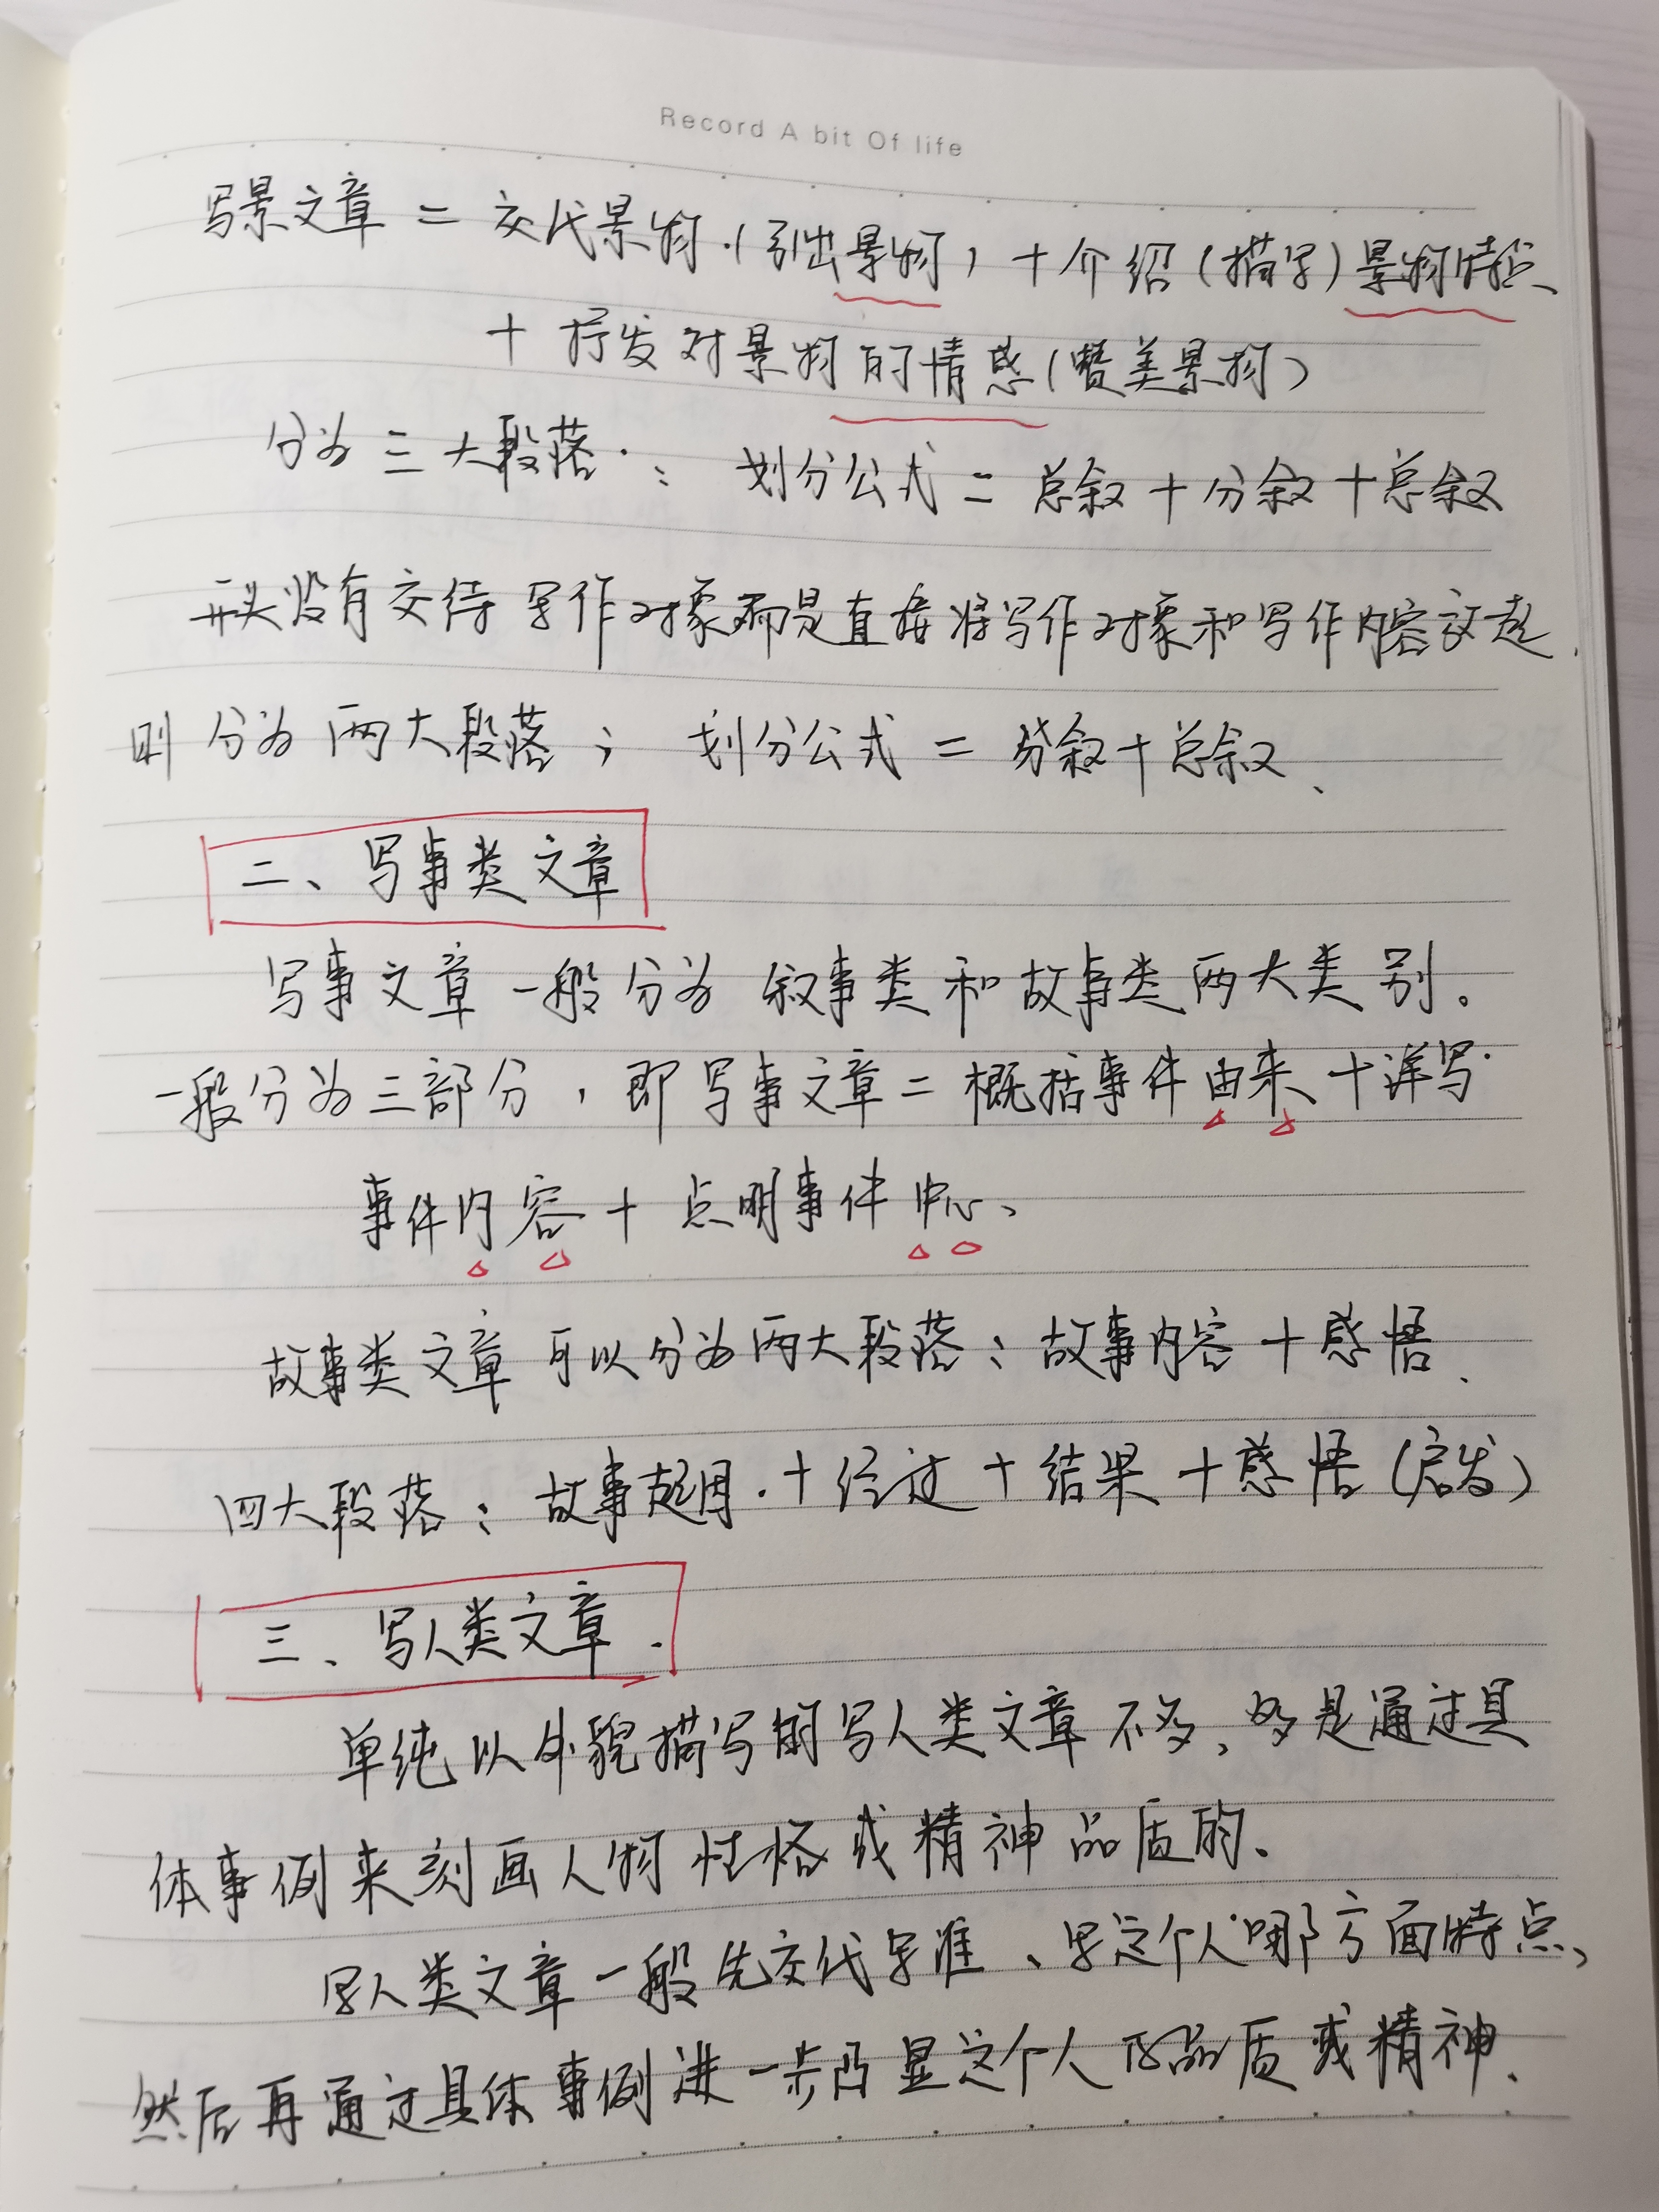 Record A bit Of life
写景文章 = 交代景物.(引出景物) + 介绍(描写)景物特点
+ 抒发对景物的情感(赞美景物)
分为三大段落: 划分公式 = 总叙 + 分叙 + 总叙
开头没有交待写作对象而是直接将写作对象和写作内容交待.
则分为两大段落; 划分公式 = 分叙+总叙、
二、写事类文章
写事文章一般分为 叙事类和故事类两大类别。
一般分为三部分,即写事文章=概括事件由来+详写
事件内容 + 点明事件中心、
故事类文章可以分为两大段落:故事内容+感悟、
四大段落:故事起因.+经过+结果+感悟(启发)
三、写人类文章.
单纯以外貌描写的写人类文章不多,多是通过具
体事例来刻画人物性格或精神品质的、
写人类文章一般先交代写谁、写这个人哪方面特点、
然后再通过具体事例进一步凸显这个人的品质或精神、